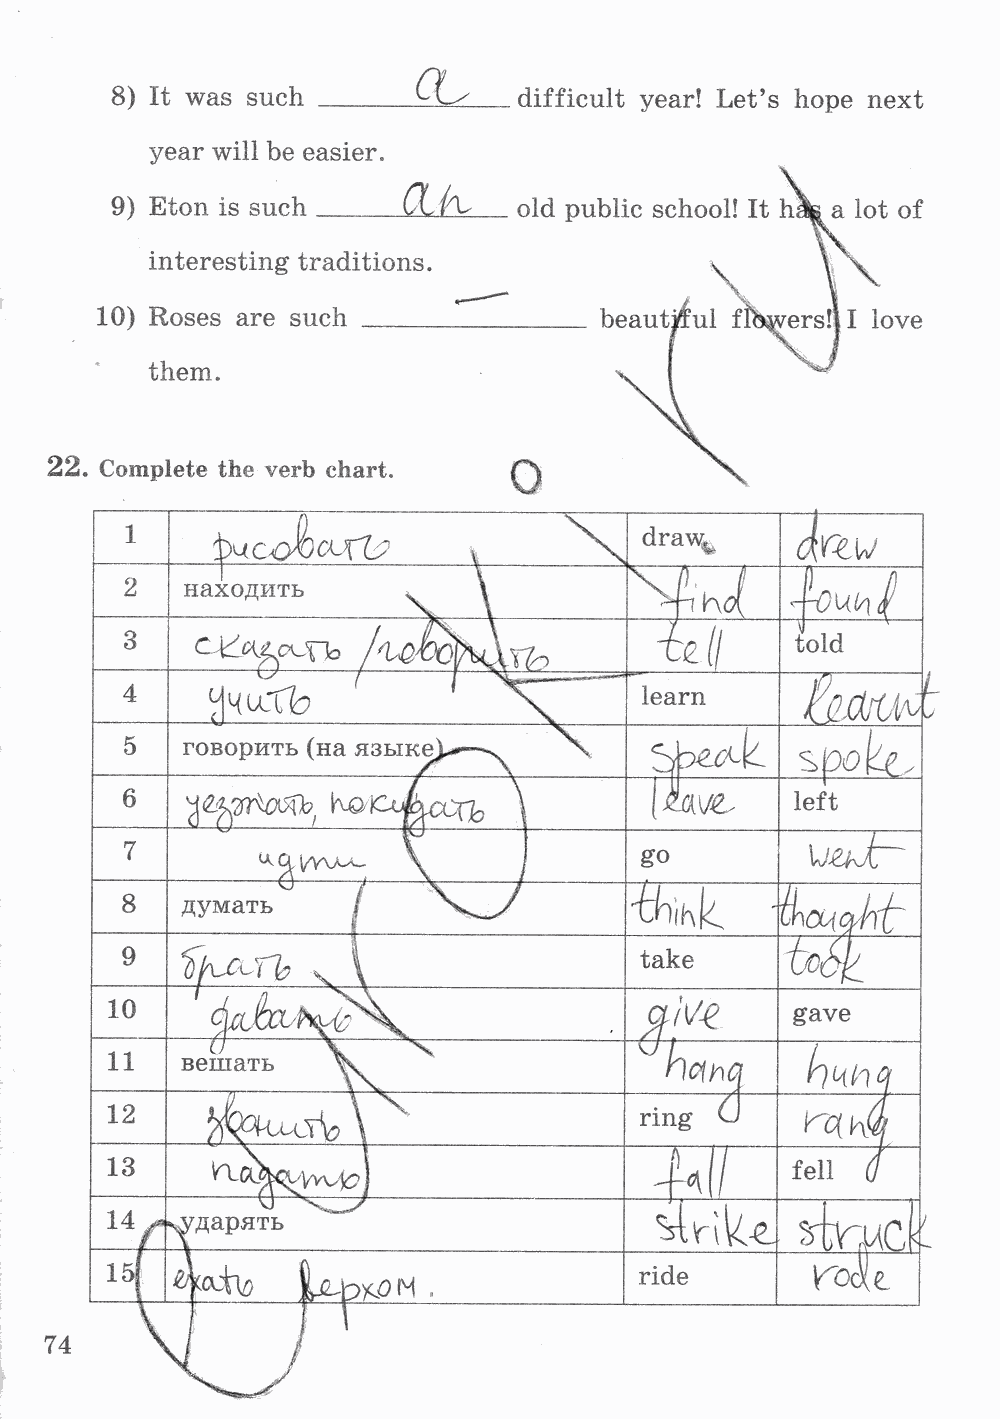 8) It was such a difficult year! Let's hope next
year will be easier.
9) Eton is such an old public school! It has a lot of
interesting traditions.
10) Roses are such – beautiful flowers! I love
them.
22. Complete the verb chart.
1 рисовать draw drew
2 находить find found
3 сказать /говорить tell told
4 учить learn learnt
5 говорить (на языке) speak spoke
6 уезжать, покидать leave left
7 идти go went
8 думать think thought
9 брать take took
10 давать give gave
11 вешать hang hung
12 звонить ring rang
13 падать fall fell
14 ударять strike struck
15 ехать верхом. ride rode
74